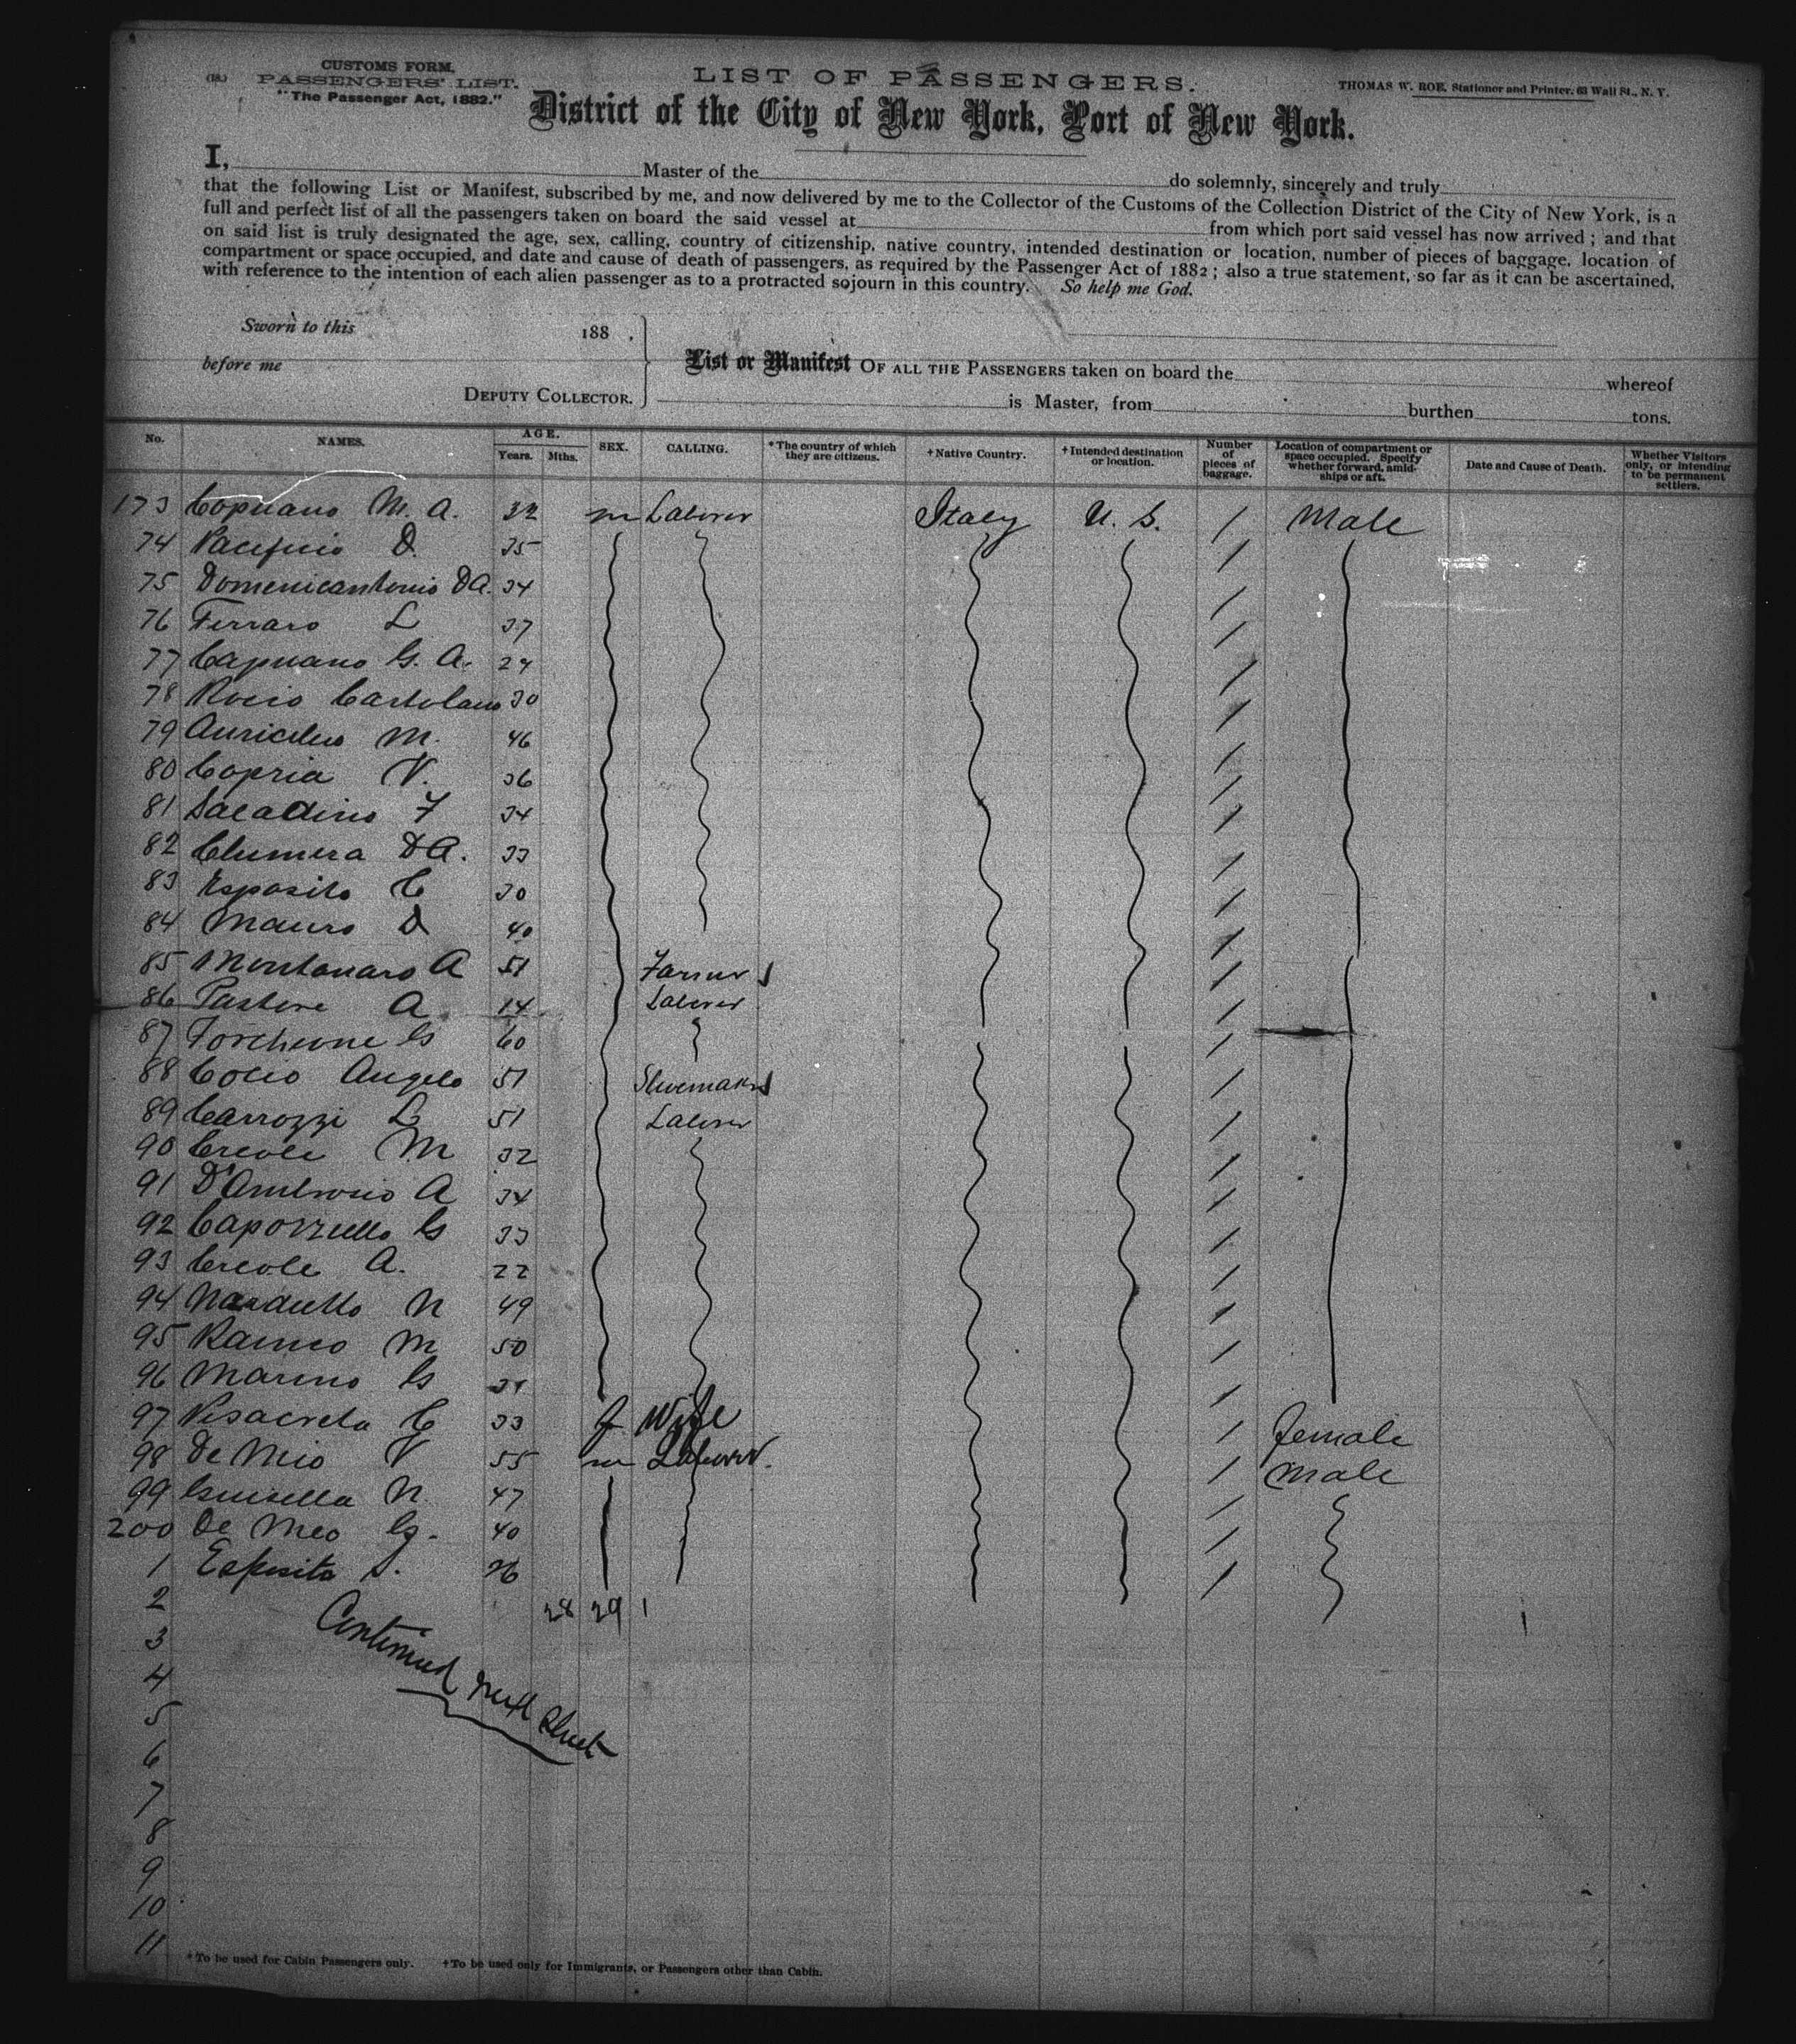 (18.)
CUSTOMS FORM.
PASSENGERS' LIST.
"The Passenger Act, 1882."
LIST OF PASSENGERS.
THOMAS W. ROE, Stationer and Printer, 63 Wall St., N. Y.
District of the City of New York, Port of New York.
I, Master of the do solemnly, sincerely and truly
that the following List or Manifest, subscribed by me, and now delivered by me to the Collector of the Customs of the Collection District of the City of New York, is a
full and perfect list of all the passengers taken on board the said vessel at from which port said vessel has now arrived; and that
on said list is truly designated the age, sex, calling, country of citizenship, native country, intended destination or location, number of pieces of baggage, location of
compartment or space occupied, and date and cause of death of passengers, as required by the Passenger Act of 1882; also a true statement, so far as it can be ascertained,
with reference to the intention of each alien passenger as to a protracted sojourn in this country. So help me God.
Sworn to this 188 .
before me
DEPUTY COLLECTOR.
List or Manifest OF ALL THE PASSENGERS taken on board the whereof
is Master, from burthen tons.
No. NAMES. AGE. Years. Mths. SEX. CALLING. *The country of which they are citizens. +Native Country. +Intended destination or location. Number of pieces of baggage. Location of compartment or space occupied. Specify whether forward, amidships or aft. Date and Cause of Death. Whether Visitors only, or intending to be permanent settlers.
173 Capuano M. A. 32 m Laborer Italy U. S. / Male
74 Pacifico D. 35 /
75 Domenicantonio DA. 34 /
76 Ferraro L 37 /
77 Capuano G. A. 24 /
78 Rocco Cartolano 30 /
79 M. 46 /
80 Copria V. 36 /
81 Saladino F 34 /
82 Clumera DA. 33 /
83 Esposito C 30 /
84 Mauro D 40 /
85 Montanaro A 51 Farmer /
86 Pastore A 14 Laborer /
87 Forchione G 60 /
88 Cocco Angelo 51 Shoemaker /
89 Carrozzi L 51 Laborer /
90 Creole M 32 /
91 D'Ambrosio A 34 /
92 Capozziello G 33 /
93 Creole A. 22 /
94 Narduello N 49 /
95 M 50 /
96 Marino G /
97 Visacreta C 33 f Wife / female
98 De Mio V 55 m Laborer. / Male
99 N. 47 /
200 De Meo G. 40 /
1 Esposito S. 26 /
2 28 29 1
Continued next Sheet
3
4
5
6
7
8
9
10
11
*To be used for Cabin Passengers only. +To be used only for Immigrants, or Passengers other than Cabin.